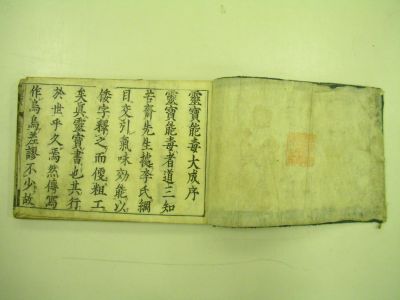 靈寶能毒大成序
靈寶能毒者道三知
苦齋先生據李氏綱
目交引氣味効能以
倭字釋之而便粗工
矣眞靈寶書也其行
於世乎久焉然傳寫
作烏焉差謬不少故